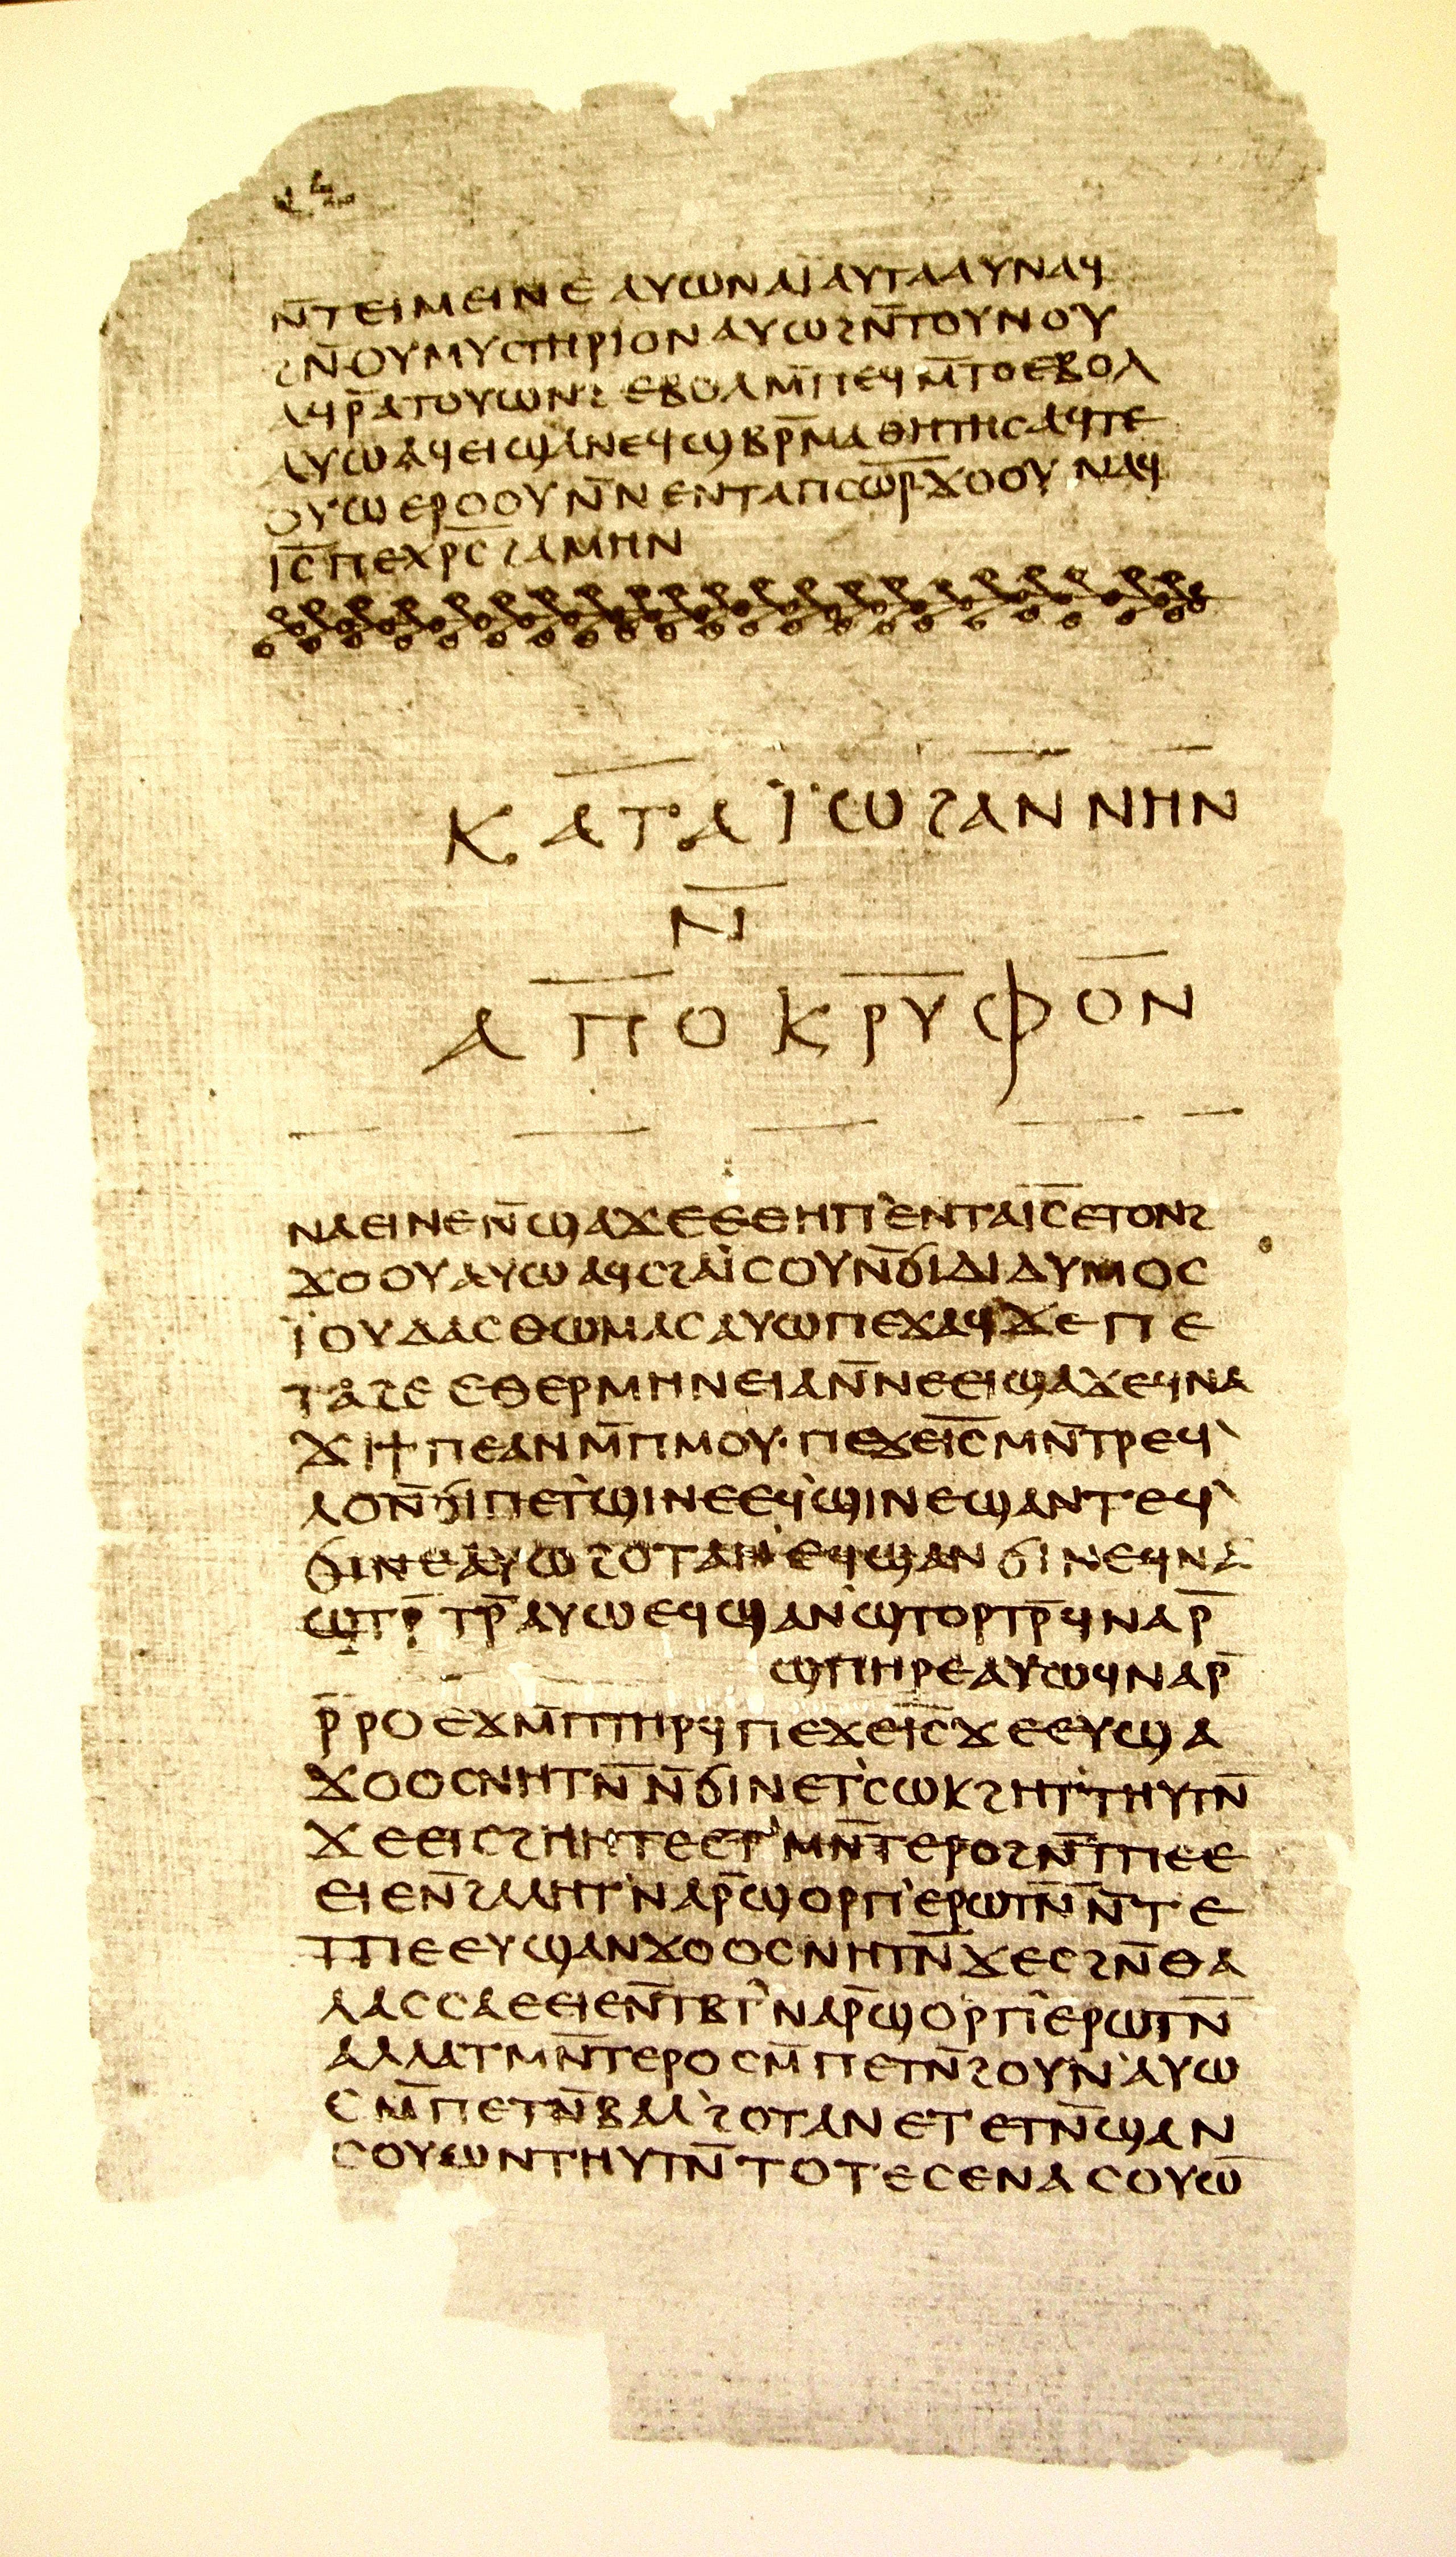 ⲛ̄ⲧⲉⲓⲙⲉⲓⲛⲉ ⲁⲩⲱ ⲛⲁⲓ̈ ⲁⲩⲧⲁⲁⲩ ⲛⲁϥ
ϩⲛ̄ ⲟⲩⲙⲩⲥⲧⲏⲣⲓⲟⲛ ⲁⲩⲱ ϩⲛ̄ ⲧⲟⲩⲛⲟⲩ
ⲁϥⲣ̄ ⲁⲧⲟⲩⲱⲛϩ ⲉⲃⲟⲗ ⲙ̄ⲡⲉϥⲙ̄ⲧⲟ ⲉⲃⲟⲗ
ⲁⲩⲱ ⲁϥⲉⲓ ϣⲁ ⲛⲉϥϣⲃⲣ̄ⲙⲁⲑⲏⲧⲏⲥ ⲁϥⲧⲉ
ⲟⲩⲱ ⲉⲣⲟⲟⲩ ⲛ̄ⲛⲉⲛⲧⲁⲡⲥⲱ̅ⲣ̅ ϫⲟⲟⲩ ⲛⲁϥ
ⲓ̅ⲥ̅ ⲡⲉⲭⲣ̅ⲥ̅ ϩⲁⲙⲏⲛ
ⲕⲁⲧⲁ ⲓ̈ⲱϩⲁⲛⲛⲏⲛ
ⲛ̄
ⲁⲡⲟⲕⲣⲩⲫⲟⲛ
ⲛⲁⲉⲓ ⲛⲉ ⲛ̄ϣⲁϫⲉ ⲉⲑⲏⲡ` ⲉⲛⲧⲁ ⲓ̅ⲥ̅ ⲉⲧⲟⲛϩ
ϫⲟⲟⲩ ⲁⲩⲱ ⲁϥⲥϩⲁⲓ̈ⲥⲟⲩ ⲛ̄ϭⲓ ⲇⲓⲇⲩⲙⲟⲥ
ⲓ̈ⲟⲩⲇⲁⲥ ⲑⲱⲙⲁⲥ ⲁⲩⲱ ⲡⲉϫⲁϥ ϫⲉ ⲡⲉ
ⲧⲁϩⲉ ⲉⲑⲉⲣⲙⲏⲛⲉⲓⲁ ⲛ̄ⲛⲉⲉⲓϣⲁϫⲉ ϥⲛⲁ
ϫⲓ ϯⲡⲉ ⲁⲛ ⲙ̄ⲡⲙⲟⲩ· ⲡⲉϫⲉ ⲓ̅ⲥ̅ ⲙⲛ̄ⲧⲣⲉϥ`
ⲗⲟ ⲛ̄ϭⲓ ⲡⲉⲧ`ϣⲓⲛⲉ ⲉϥ`ϣⲓⲛⲉ ϣⲁⲛⲧⲉϥ`
ϭⲓⲛⲉ ⲁⲩⲱ ϩⲟⲧⲁⲛ` ⲉϥϣⲁⲛϭⲓⲛⲉ ϥⲛⲁ
ϣⲧⲣ̄ⲧⲣ̄ ⲁⲩⲱ ⲉϥϣⲁⲛ`ϣⲧⲟⲣⲧⲣ̄ ϥⲛⲁⲣ̄
ϣⲡⲏⲣⲉ ⲁⲩⲱ ϥⲛⲁⲣ̄
ⲣ̄ⲣⲟ ⲉϫⲙ̄ ⲡⲧⲏⲣϥ ⲡⲉϫⲉ ⲓ̅ⲥ̅ ϫⲉ ⲉⲩϣⲁ
ϫⲟⲟⲥ ⲛⲏⲧⲛ̄ ⲛ̄ϭⲓ ⲛⲉⲧ`ⲥⲱⲕ ϩⲏⲧ` ⲧⲏⲩⲧⲛ̄
ϫⲉ ⲉⲓⲥϩⲏⲏⲧⲉ ⲉⲧ`ⲙⲛ̄ⲧⲉⲣⲟ ϩⲛ̄ ⲧⲡⲉ ⲉ
ⲉⲓⲉ ⲛ̄ϩⲁⲗⲏⲧ` ⲛⲁⲣ̄ ϣⲟⲣⲡ` ⲉⲣⲱⲧⲛ̄ ⲛ̄ⲧⲉ
ⲧⲡⲉ ⲉⲩϣⲁⲛϫⲟⲟⲥ ⲛⲏⲧⲛ̄ ϫⲉ ⲥϩⲛ̄ ⲑⲁ
ⲗⲁⲥⲥⲁ ⲉⲉⲓⲉ ⲛ̄ⲧⲃⲧ` ⲛⲁⲣ̄ ϣⲟⲣⲡ` ⲉⲣⲱⲧⲛ̄
ⲁⲗⲗⲁ ⲧⲙⲛ̄ⲧⲉⲣⲟ ⲥⲙ̄ⲡⲉⲧⲛ̄ϩⲟⲩⲛ` ⲁⲩⲱ
ⲥⲙ̄ⲡⲉⲧⲛ̄ⲃⲁⲗ` ϩⲟⲧⲁⲛ ⲉⲧⲉⲧⲛ̄ϣⲁⲛ
ⲥⲟⲩⲱⲛ ⲧⲏⲩⲧⲛ̄ ⲧⲟⲧⲉ ⲥⲉⲛⲁⲥⲟⲩⲱ̄